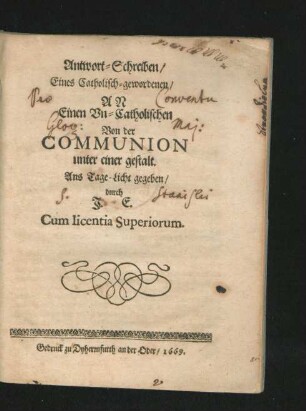 Antwort-Schreiben/
Eines Catholisch-gewordenen/
Pro Conventu
AN
Einen Un-Catholischen
Glog: Maj:
Von der
COMMUNION
unter einer gestalt.
Ans Tage-Licht gegeben/
durch
S. Stanislai
J. E.
Cum licentia Superiorum.
Gedruckt zu Dyhernfurth an der Oder/ 1669.